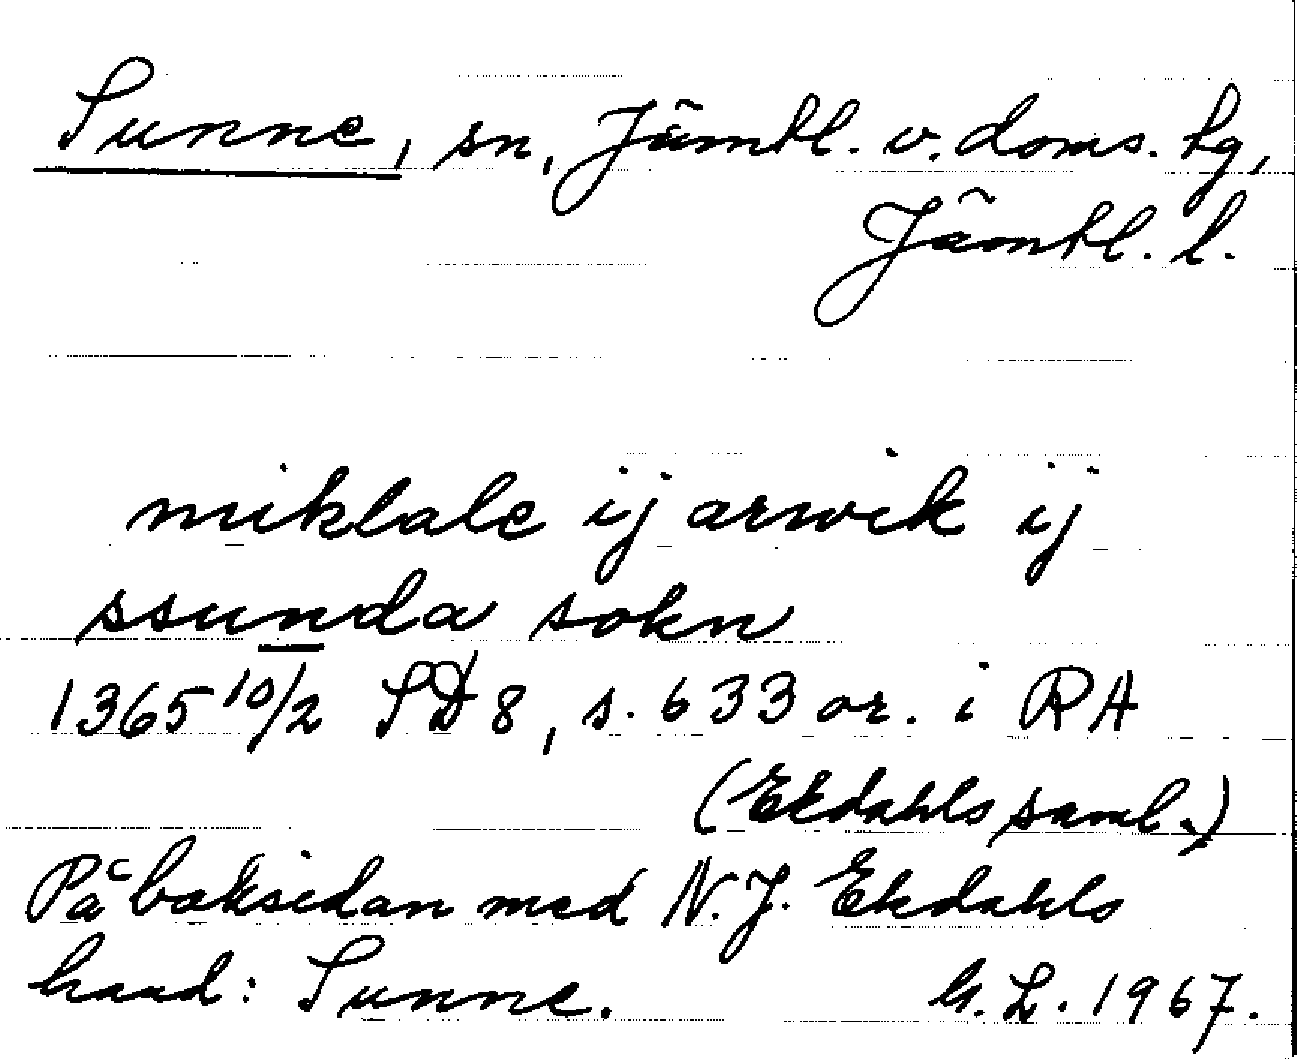 Sunne, sn, Jämtl. v. doms. tg,
Jämtl. l.
miklale ij arwik ij
ssunda sokn
1365 10/2 SD 8, s. 633 or. i RA
(Ekdahls saml.)
På baksidan med N. J. Ekdahls
hand: Sunne. G. L. 1967.